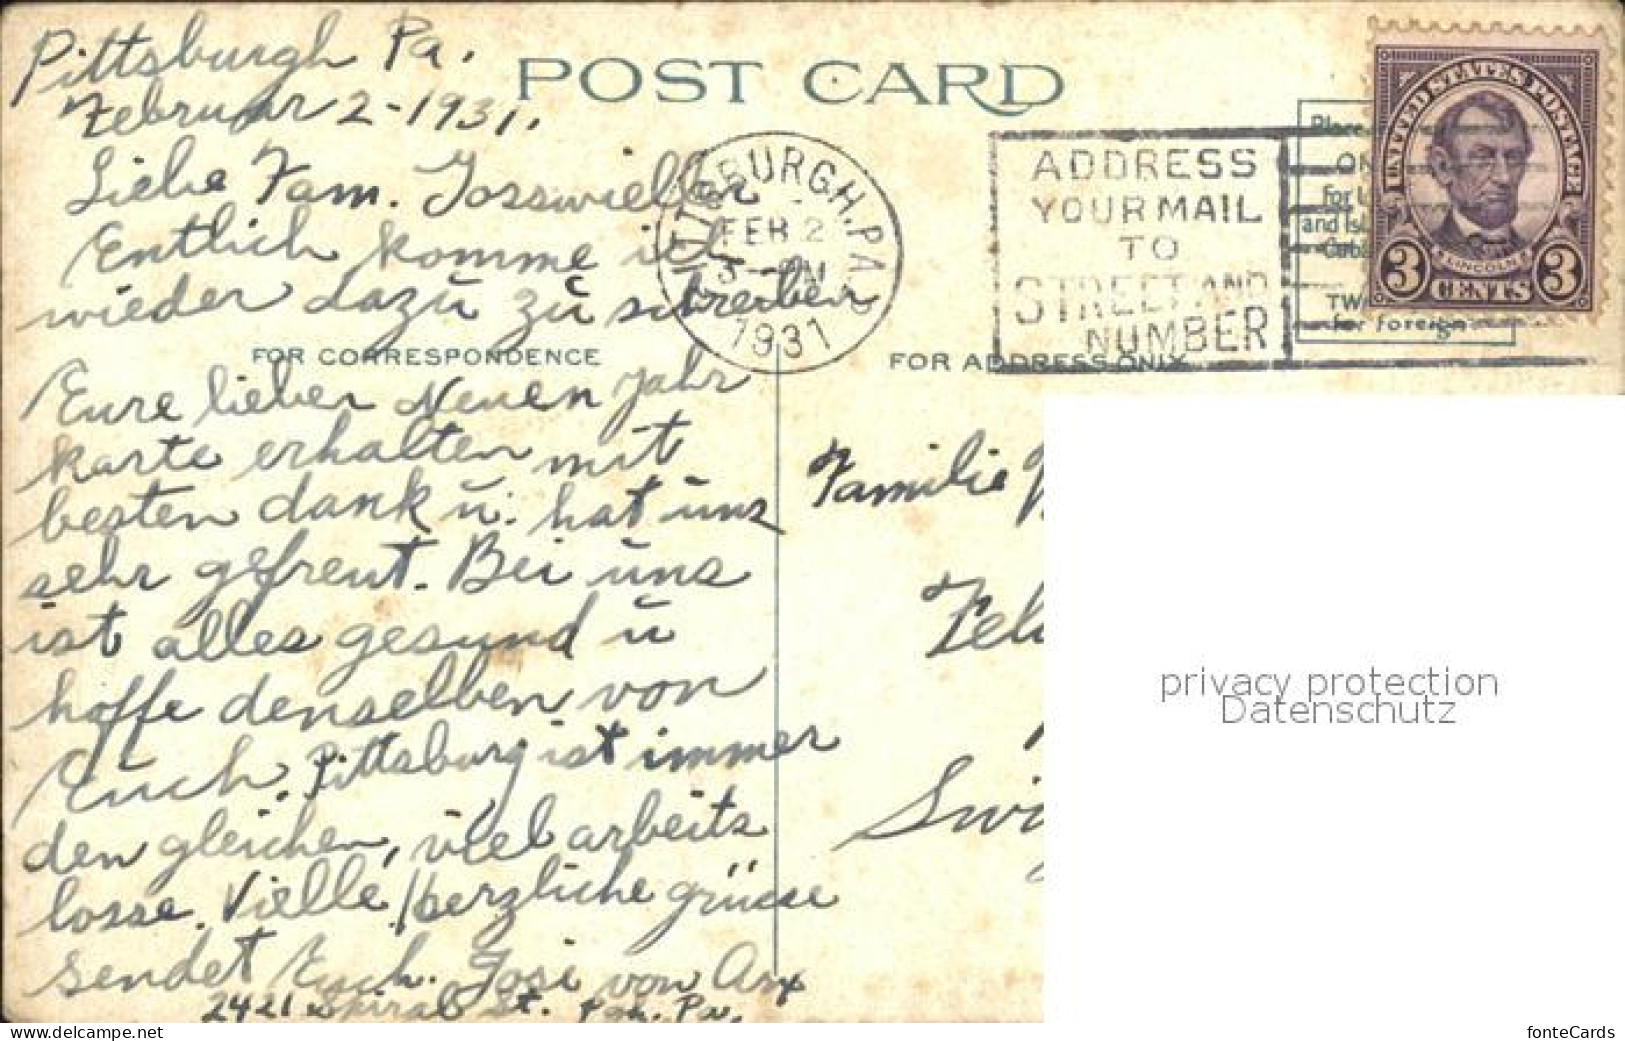 Pittsburgh Pa.
Februar 2-1931.
Liebe Fam. Josswieller
Entlich komme ich
wieder dazu zu schreiben
Eure lieber Neuen Jahr
karte erhalten mit
besten dank u. hat uns
sehr gefreut. Bei uns
ist alles gesund u
hoffe denselben von
Euch. Pittsburg ist immer
den gleichen, viel arbeits
losse. Vielle herzliche grüsse
sendet Euch. Josi von Arx
2421 Spiral St. Pgh. Pa.
POST CARD
FOR CORRESPONDENCE
FOR ADDRESS ONLY
PITTSBURGH, PA.
FEB 2
3 - PM
1931
ADDRESS
YOUR MAIL
TO
STREET AND
NUMBER
Place
ON
for
and Isl
Cuba
TW
for foreign
UNITED STATES POSTAGE
LINCOLN
3 CENTS 3
Familie
Swi
privacy protection
Datenschutz
delcampe.net
fonteCards